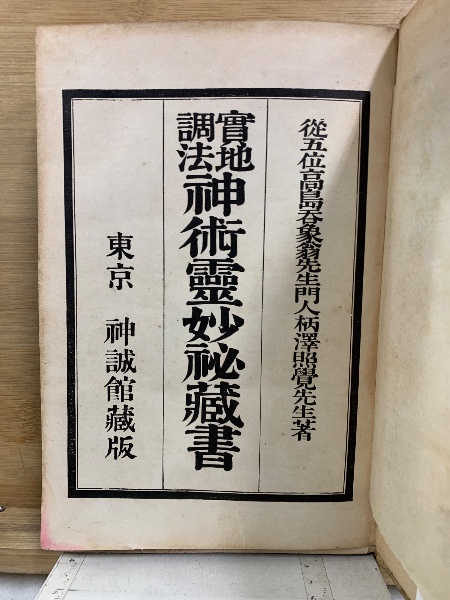 從五位高島吞象翁先生門人柄澤照覺先生著
實地調法神術靈妙祕藏書
東京 神誠館藏版